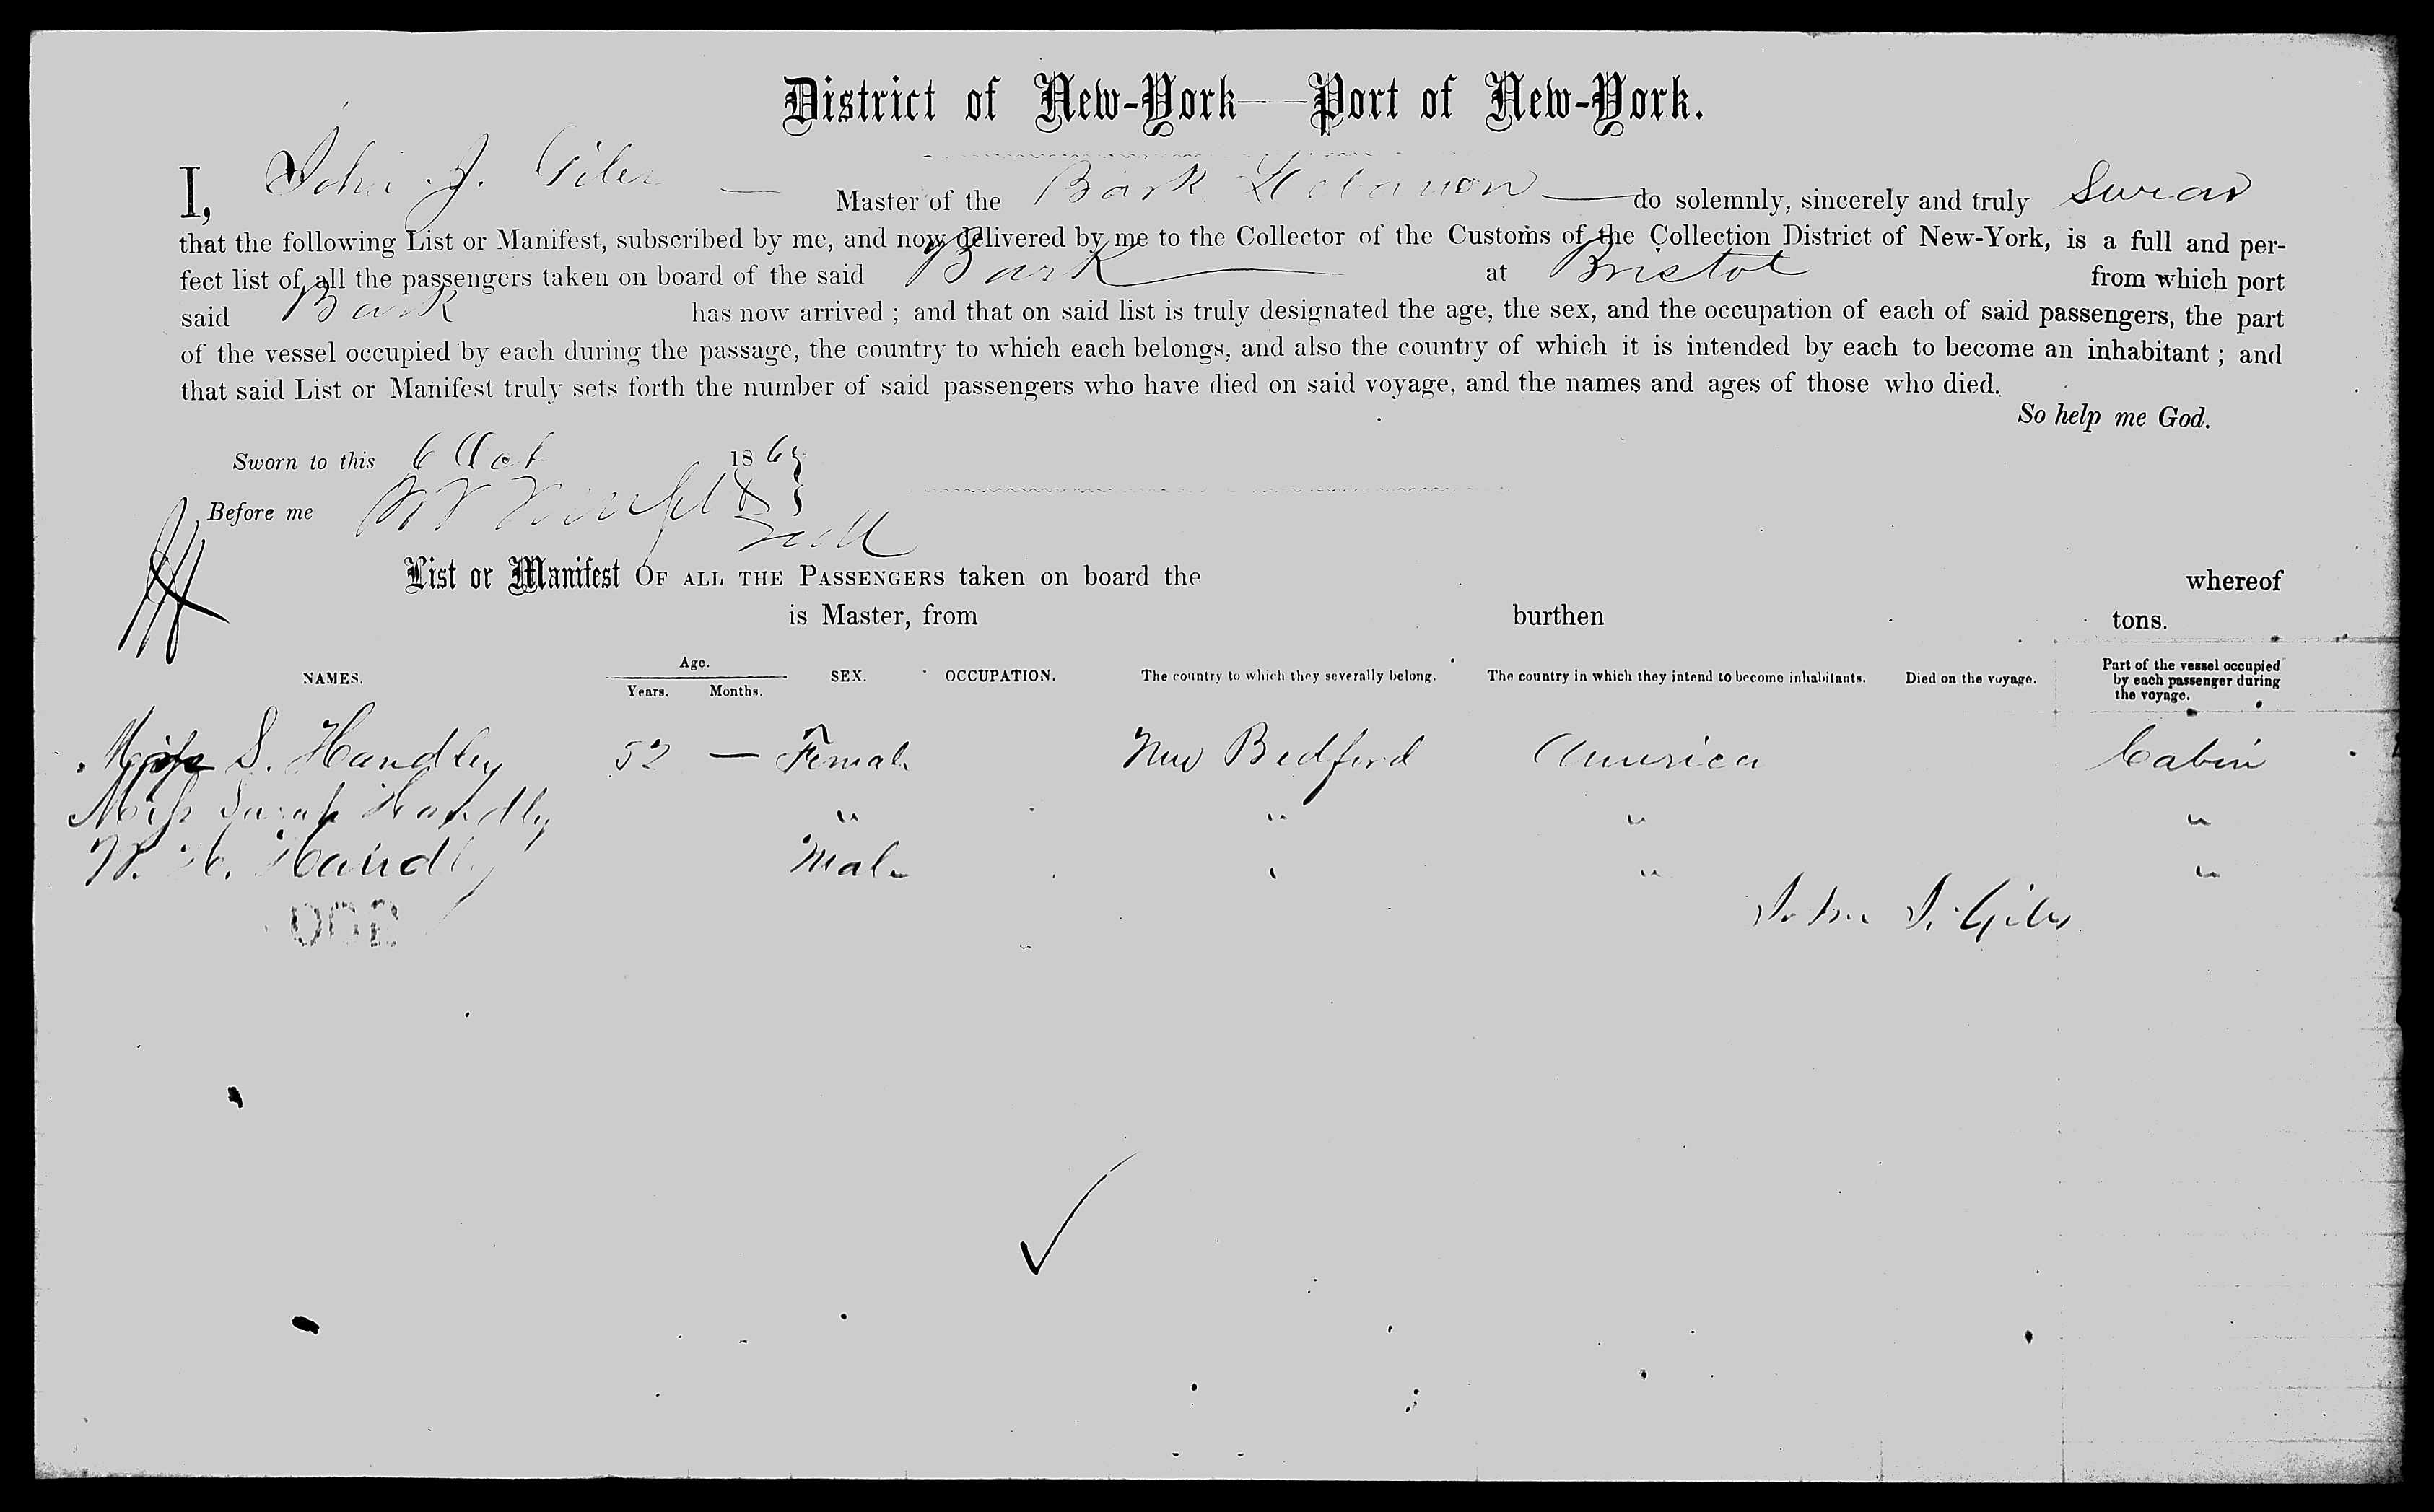 District of New-York—Port of New-York.
I, John J. Giles — Master of the Bark Lebanon — do solemnly, sincerely and truly Swear
that the following List or Manifest, subscribed by me, and now delivered by me to the Collector of the Customs of the Collection District of New-York, is a full and per-
fect list of all the passengers taken on board of the said Bark — at Bristol from which port
said Bark has now arrived ; and that on said list is truly designated the age, the sex, and the occupation of each of said passengers, the part
of the vessel occupied by each during the passage, the country to which each belongs, and also the country of which it is intended by each to become an inhabitant ; and
that said List or Manifest truly sets forth the number of said passengers who have died on said voyage, and the names and ages of those who died.
So help me God.
Sworn to this 6 Oct 186
Before me
List or Manifest OF ALL THE PASSENGERS taken on board the whereof
is Master, from burthen tons.
NAMES. Age. Years. Months. SEX. OCCUPATION. The country to which they severally belong. The country in which they intend to become inhabitants. Died on the voyage. Part of the vessel occupied by each passenger during the voyage.
S. Handley 52 — Female New Bedford America Cabin
Miss Sarah Handley " " " "
W. H. Handley Male " " "
John J. Giles